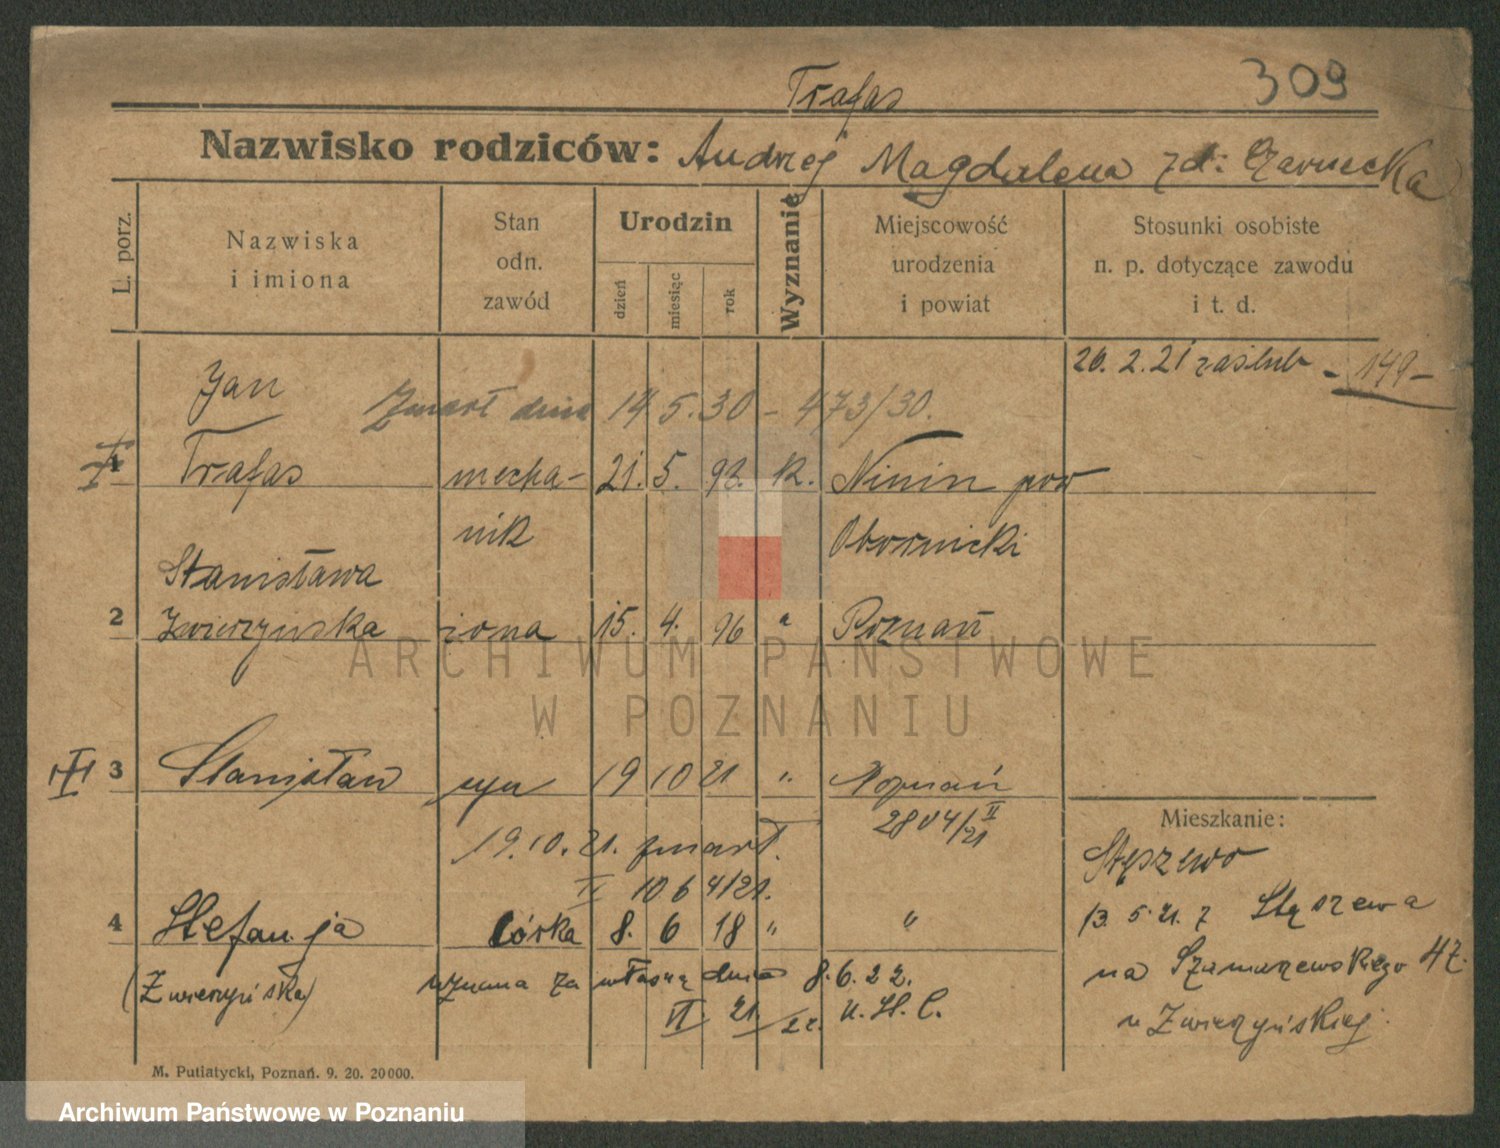 Trafas
309
Nazwisko rodziców: Andrzej Magdalena zd: Czarnecka
L. porz.
Nazwiska
i imiona
Stan
odn.
zawód
Urodzin
dzień
miesiąc
rok
Wyznanie
Miejscowość
urodzenia
i powiat
Stosunki osobiste
n. p. dotyczące zawodu
i t. d.
26. 2. 21 zaślub - 149 -
Jan
Zmarł dnia 14 5. 30 - 473/30.
1 Trafas mecha- 21. 5. 92. k. Ninin pow
nik Obornicki
Stanisława
2 Zwierzyńska żona 15. 4. 96 " Poznań
ARCHIWUM PAŃSTWOWE
W POZNANIU
3 Stanisław syn 19 10 21 " Poznań
2804/21 II
19. 10. 21. zmarł.
II 1064/21.
4 Stefanja córka 8. 6 18 " "
(Zwierzyńska) uznana za własną dnia 8. 6. 22.
VI 21./22. U. St. C.
Mieszkanie:
Stęszewo
13. 5. 21. z Stęszewa
na Szamarzewskiego 42.
u Zwierzyńskiej.
M. Putiatycki, Poznań. 9. 20. 20000.
Archiwum Państwowe w Poznaniu